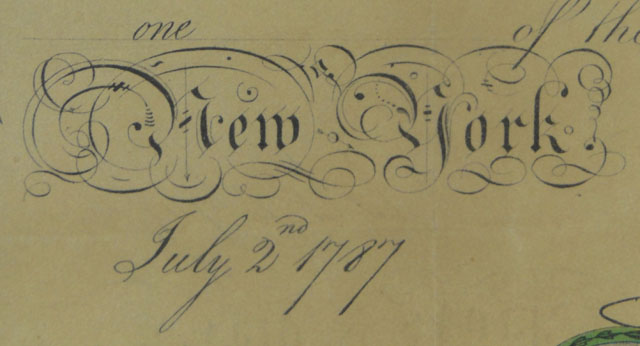 one of the
New York.
July 2nd 1787